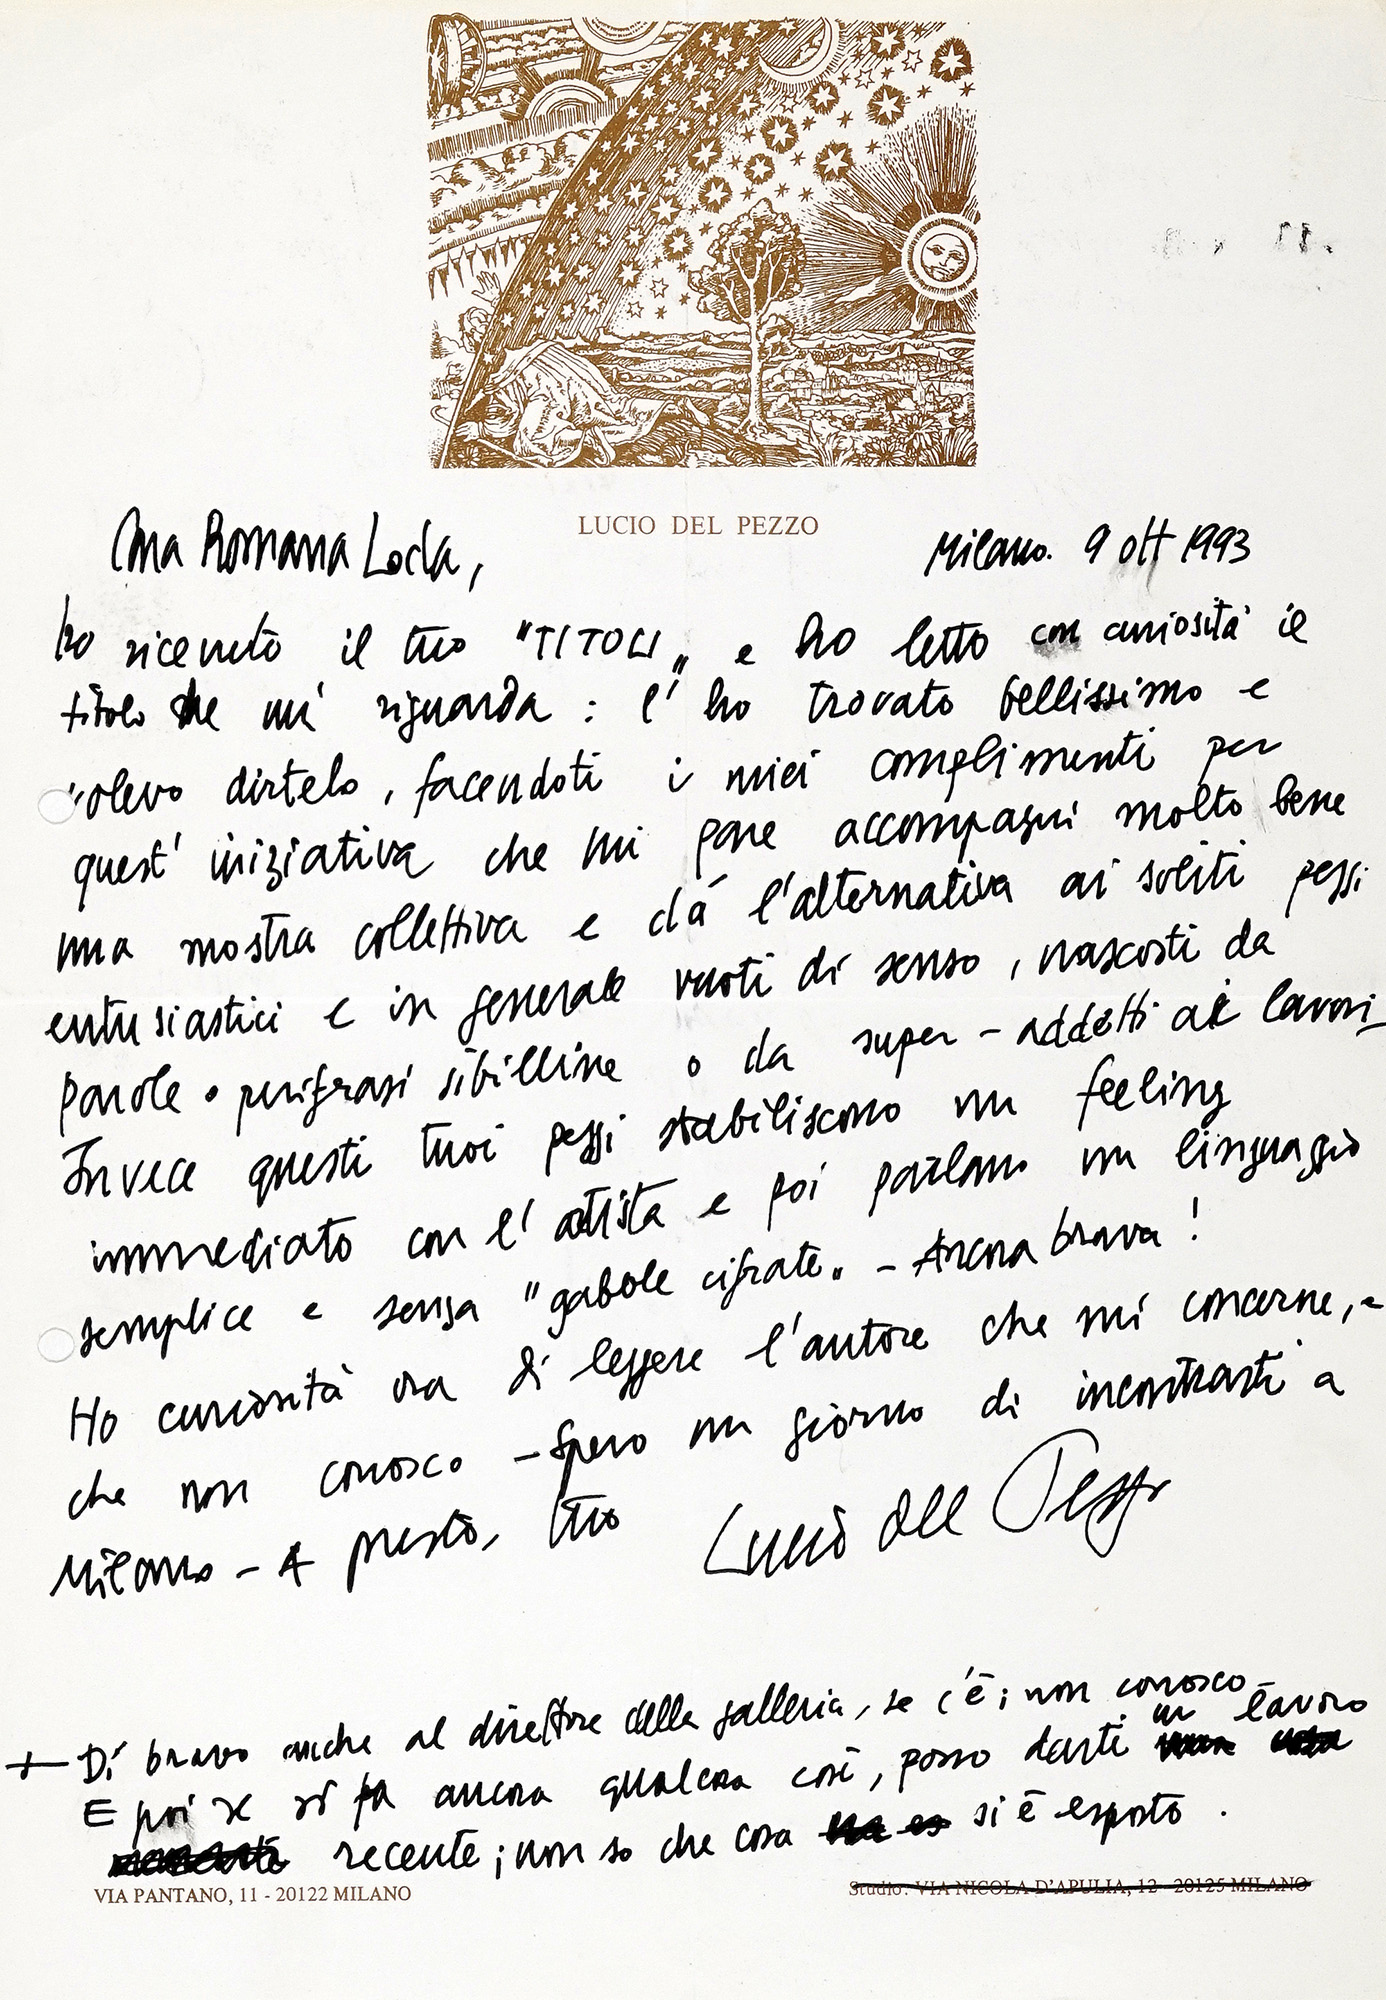 LUCIO DEL PEZZO
Cara Romana Loda,
Milano. 9 ott 1993
ho ricevuto il tuo "TITOLI" e ho letto con curiosità il
titolo che mi riguarda : l'ho trovato bellissimo e
volevo dirtelo, facendoti i miei complimenti per
quest' iniziativa che mi pare accompagni molto bene
una mostra collettiva e dá l'alternativa ai soliti pezzi
entusiastici e in generale vuoti di senso, nascosti da
parole o perifrasi sibilline o da super - addetti ai lavori_
Invece questi tuoi pezzi stabiliscono un feeling
immediato con l'artista e poi parlano un linguaggio
semplice e senza "gabole cifrate" - Ancora brava !
Ho curiosità ora di leggere l'autore che mi concerne, e
che non conosco - Spero un giorno di incontrarti a
Milano - A presto, tuo Lucio del Pezzo
Dì bravo anche al direttore della galleria, se c'è ; non conosco
E poi se si fa ancora qualcosa così, posso darti un lavoro
recente ; non so che cosa si è esposto .
VIA PANTANO, 11 - 20122 MILANO
Studio: VIA NICOLA D'APULIA, 12 - 20125 MILANO